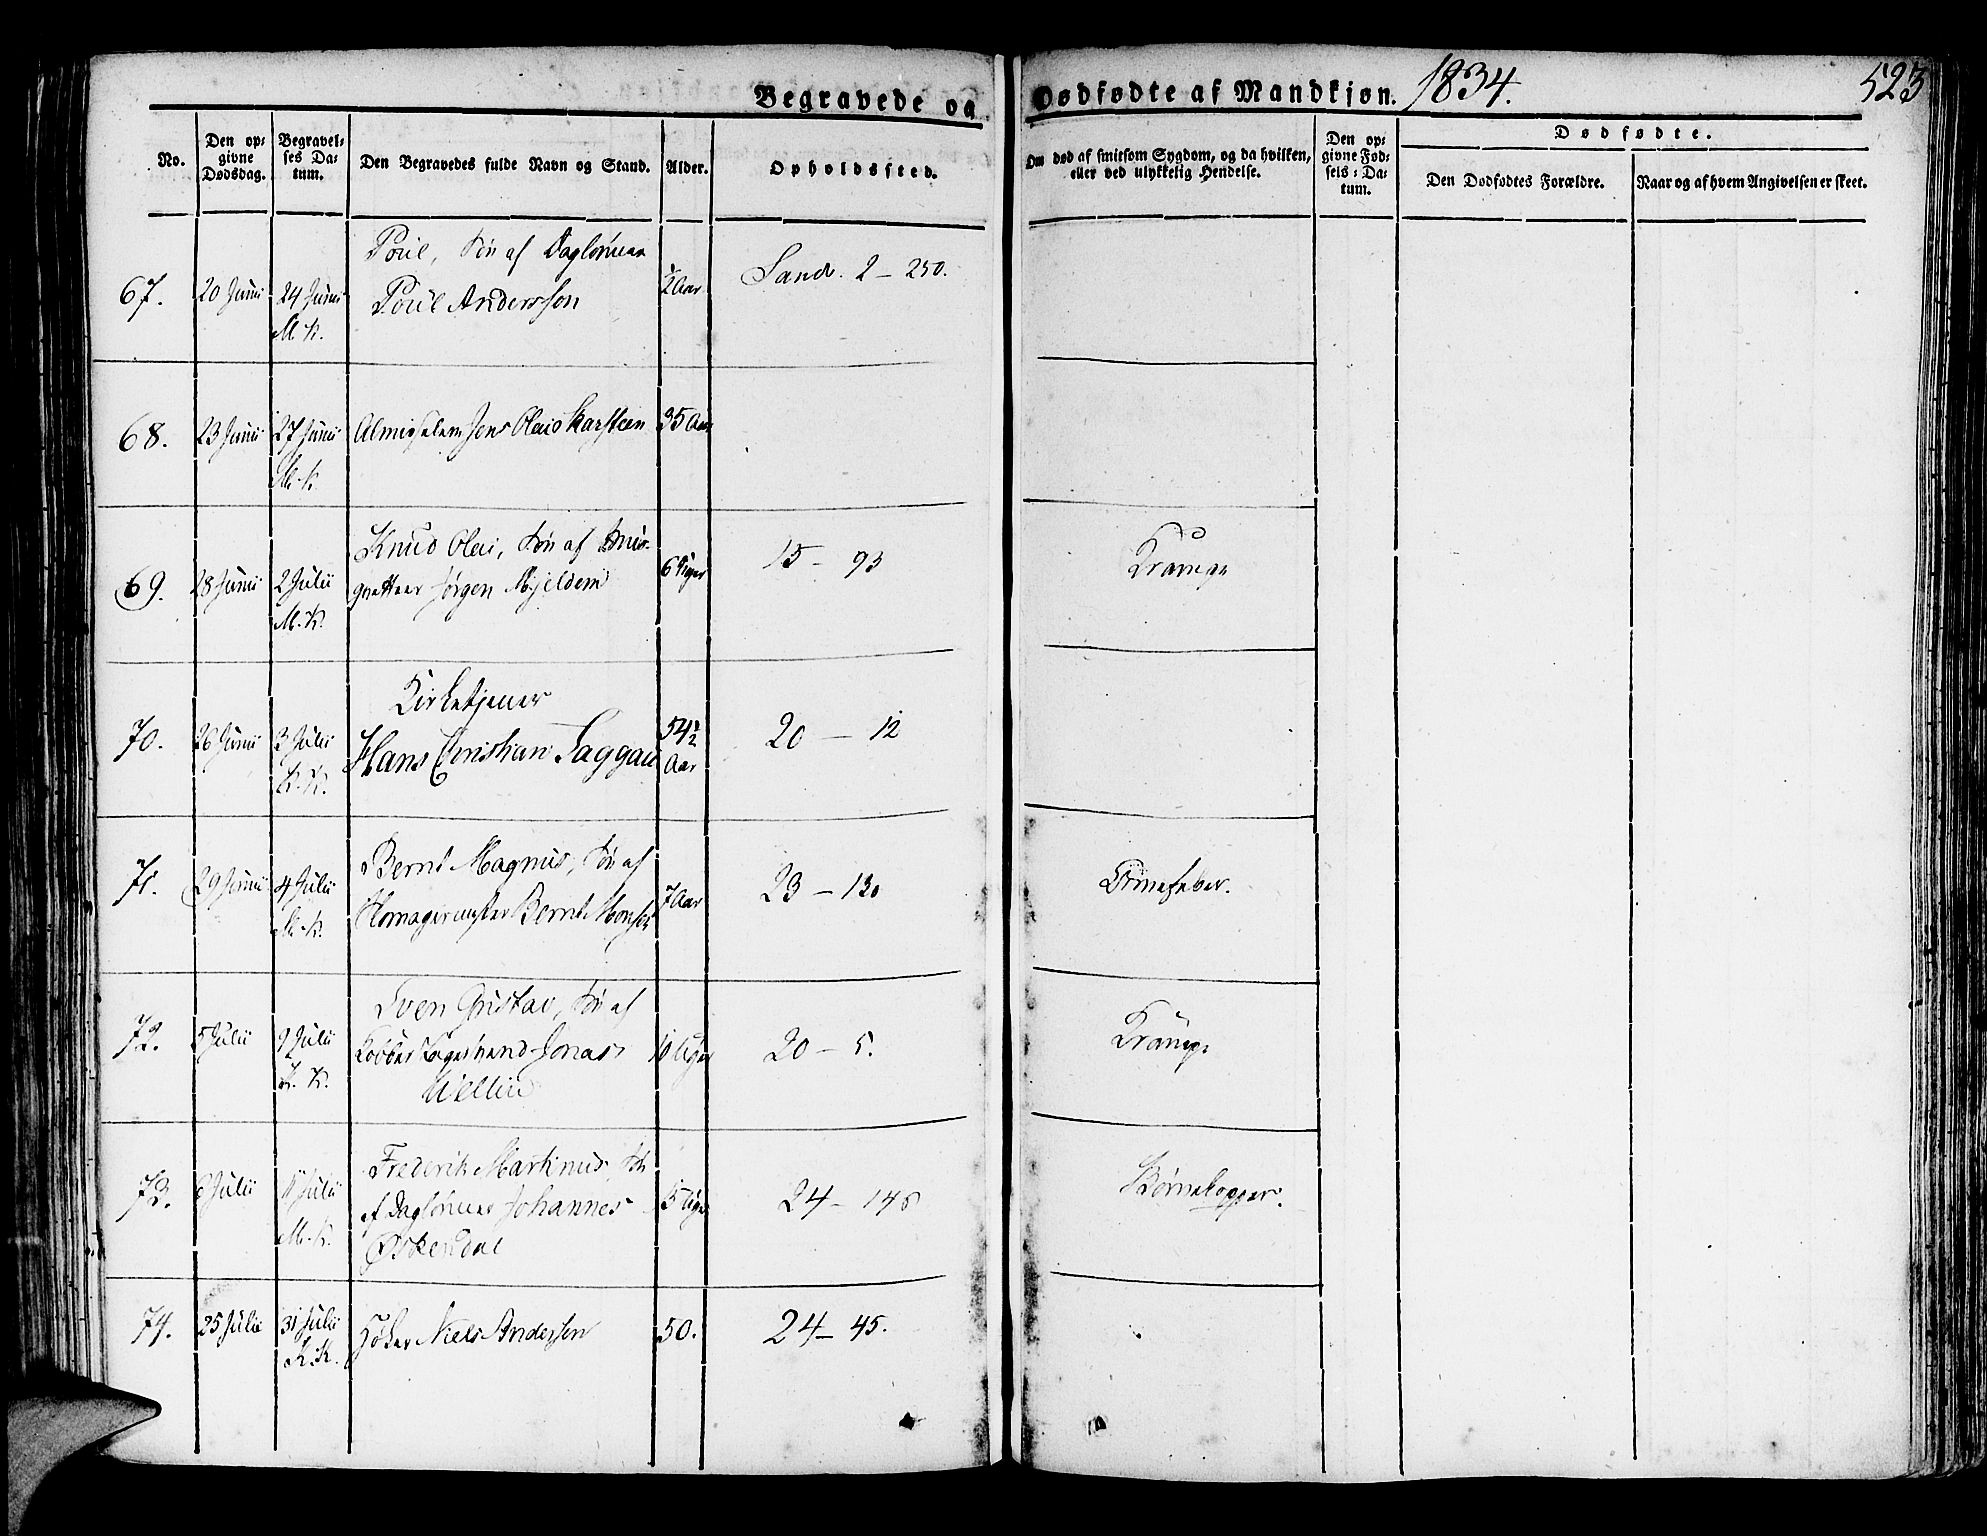 Begravede og Dødfødte af Mandkjøn. 1834. 523
No.
Den opgivne Dødsdag.
Begravelses Datum.
Den Begravedes fulde Navn og Stand.
Alder.
Opholdssted.
Om død af smitsom Sygdom, og da hvilken, eller ved ulykkelig Hendelse.
Den opgivne Fødsels-Datum.
Dødfødte.
Den Dødfødtes Forældre.
Naar og af hvem Angivelsen er skeet.
67. 20 Junii 24 Junii M. K.
Poul, Søn af Dagleier
Poul Andersson
½ Aar
Sand. 2 - 250.
68. 23 Junii 27 Junii M. K.
Almisselem Jens Olai Karsteen
35 Aar
69. 28 Junii 2 Julii M. K.
Knud Olai, Søn af
Jørgen Mjeldem
6 Uger
15 - 93
Krampe
70. 26 Junii 3 Julii K. K.
Kirketjener
Hans Christian Saggau
54½ Aar
20 - 12
71. 29 Junii 4 Julii M. K.
Bernt Magnus, Søn af
Bernt Monsen
7 Aar
23 - 130
72. 5 Julii 9 Julii K. K.
Sven Gustav, Søn af
Kobberslagersvend Jonas
Wellin
10 Uger
20 - 5.
Krampe
73. 8 Julii 11 Julii M. K.
Frederik Martinus, Søn
af Dagleier Johannes
Øskendal
5 Uger
24 - 148
Børnekopper.
74. 25 Julii 31 Julii K. K.
Høker Niels Anderssen
50.
24 - 45.